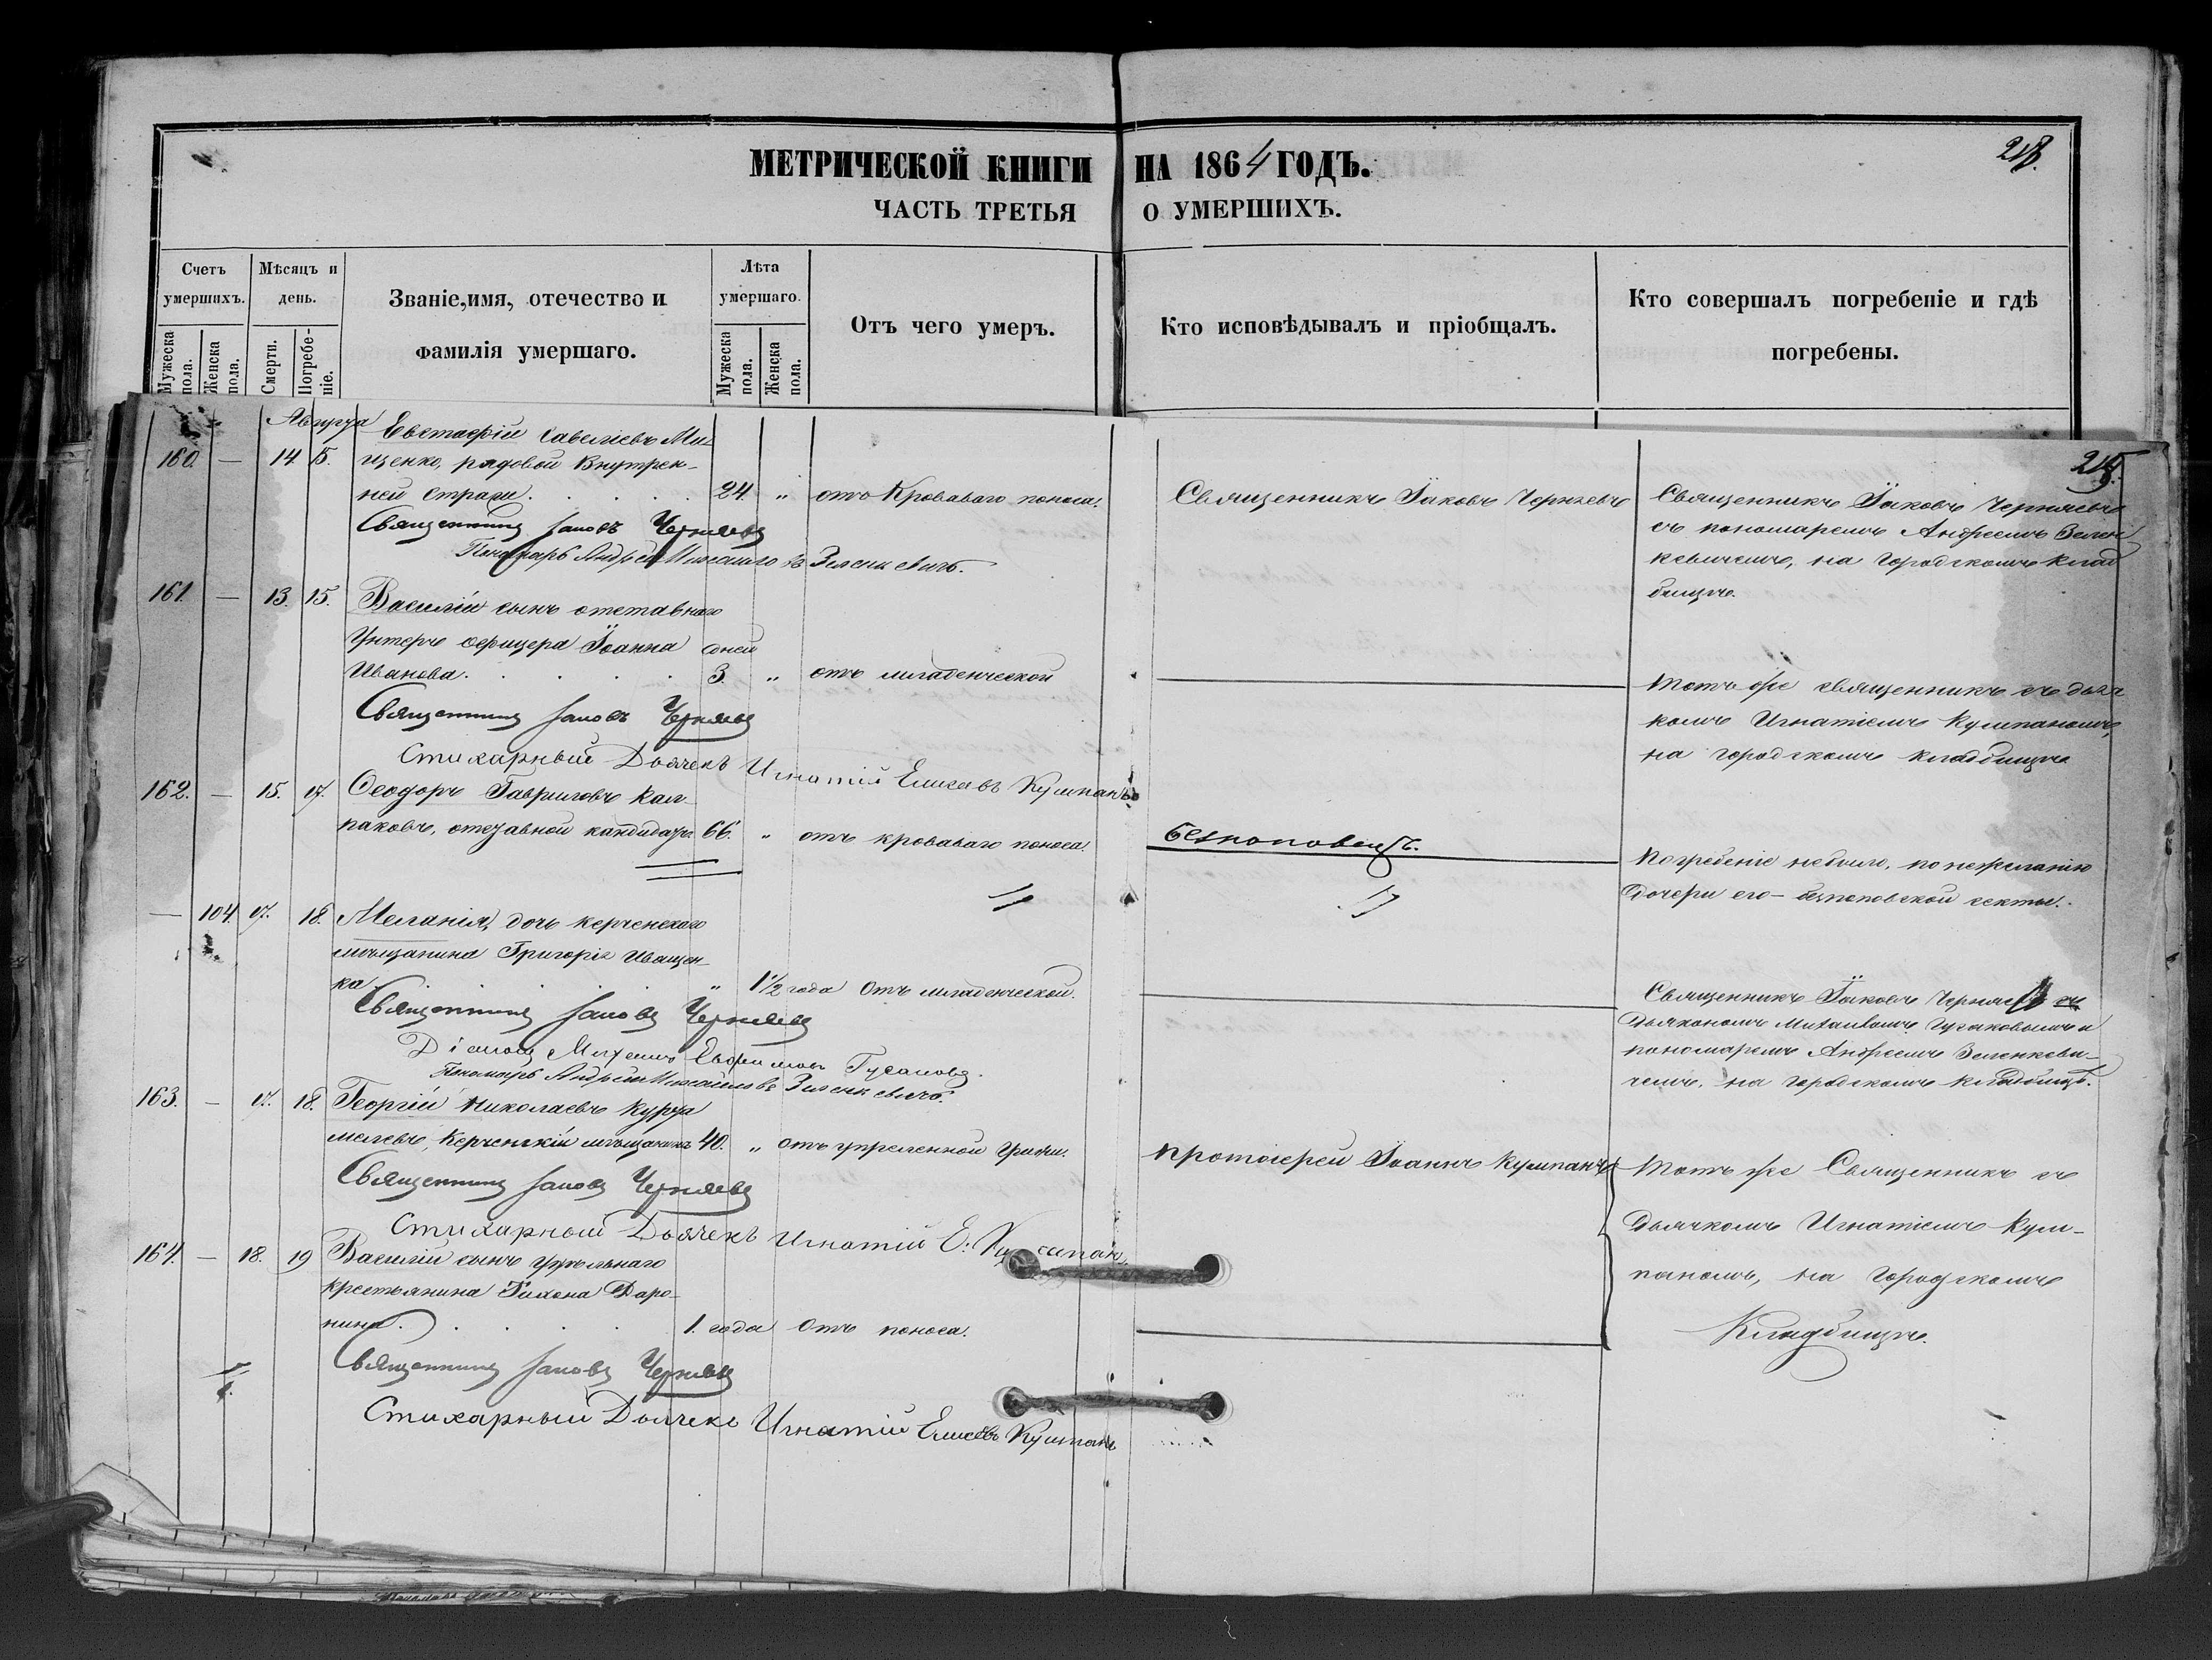 МЕТРИЧЕСКОЙ КНИГИ НА 1864 ГОДЪ.
218.
ЧАСТЬ ТРЕТЬЯ О УМЕРШИХЪ.
Счетъ умершихъ.
Мужеска пола.
Женска пола.
Мѣсяцъ и день.
Смерти.
Погребеніе.
Званіе,имя, отечество и фамилія умершаго.
Лѣта умершаго.
Мужеска пола.
Женска пола.
Отъ чего умеръ.
Кто исповѣдывалъ и пріобщалъ.
Кто совершалъ погребеніе и гдѣ погребены.
Августа
160. — 14 15. Евстафій Савеліевъ Ми-
щенко, рядовой Внутрен-
ней Стражи. 24 „ отъ Кроваваго поноса.
Священникъ Іаковъ Черняевъ
Священникъ Іаковъ Черняевъ
съ пономаремъ Андреемъ Зелен
кевичемъ, на городскомъ клад
бищѣ.
Священникъ Іаковъ Черняевъ
Пономарь Андрей Михайловъ Зеленкевичъ.
161. — 13. 15. Василій сынъ отставнаго
Унтеръ офицера Іоанна
Иванова. дней 3. „ отъ младенческой
Тотъ же священникъ съ дьяч
комъ Игнатіемъ Кумпаномъ,
на городскомъ кладбищѣ
Священникъ Іаковъ Черняевъ
Стихарный Дьячекъ Игнатій Елисеевъ Кумпанъ
162. — 15. 17. Ѳеодоръ Гавриловъ Кал-
паковъ, отставной кандидатъ. 66. „ отъ кроваваго поноса.
безпоповецъ.
Погребеніе небыло, по нежеланію
дочери его – безпоповской секты.
— 104. 17. 18. Меланія, дочь керченскаго
мѣщанина Григорія Иващен-
ка. „ 1½ года Отъ младенческой.
Священникъ Іаковъ Черняевъ съ
Дьякономъ Михаиломъ Гусаковымъ и
пономаремъ Андреемъ Зеленкеви-
чемъ, на городскомъ кладбищѣ.
Священникъ Іаковъ Черняевъ
Діаконъ Михаилъ Евфимовъ Гусаковъ.
Пономарь Андрей Михайловъ Зеленкевичъ.
163. — 17. 18. Георгій Николаевъ Курта
мелевъ, Керченскій мѣщанинъ 40. „ отъ
Протоіерей Іоаннъ Кумпанъ
Тотъ же Священникъ съ
Дьячкомъ Игнатіемъ Кум-
паномъ, на городскомъ
Кладбищѣ.
Священникъ Іаковъ Черняевъ
Стихарный Дьячекъ Игнатій Е. Кумпанъ
164. — 18. 19 Василій сынъ удѣльнаго
крестьянина Тихона Даро-
нина. 1. года Отъ поноса.
Священникъ Іаковъ Черняевъ
Стихарный Дьячекъ Игнатій Елисеевъ Кумпанъ